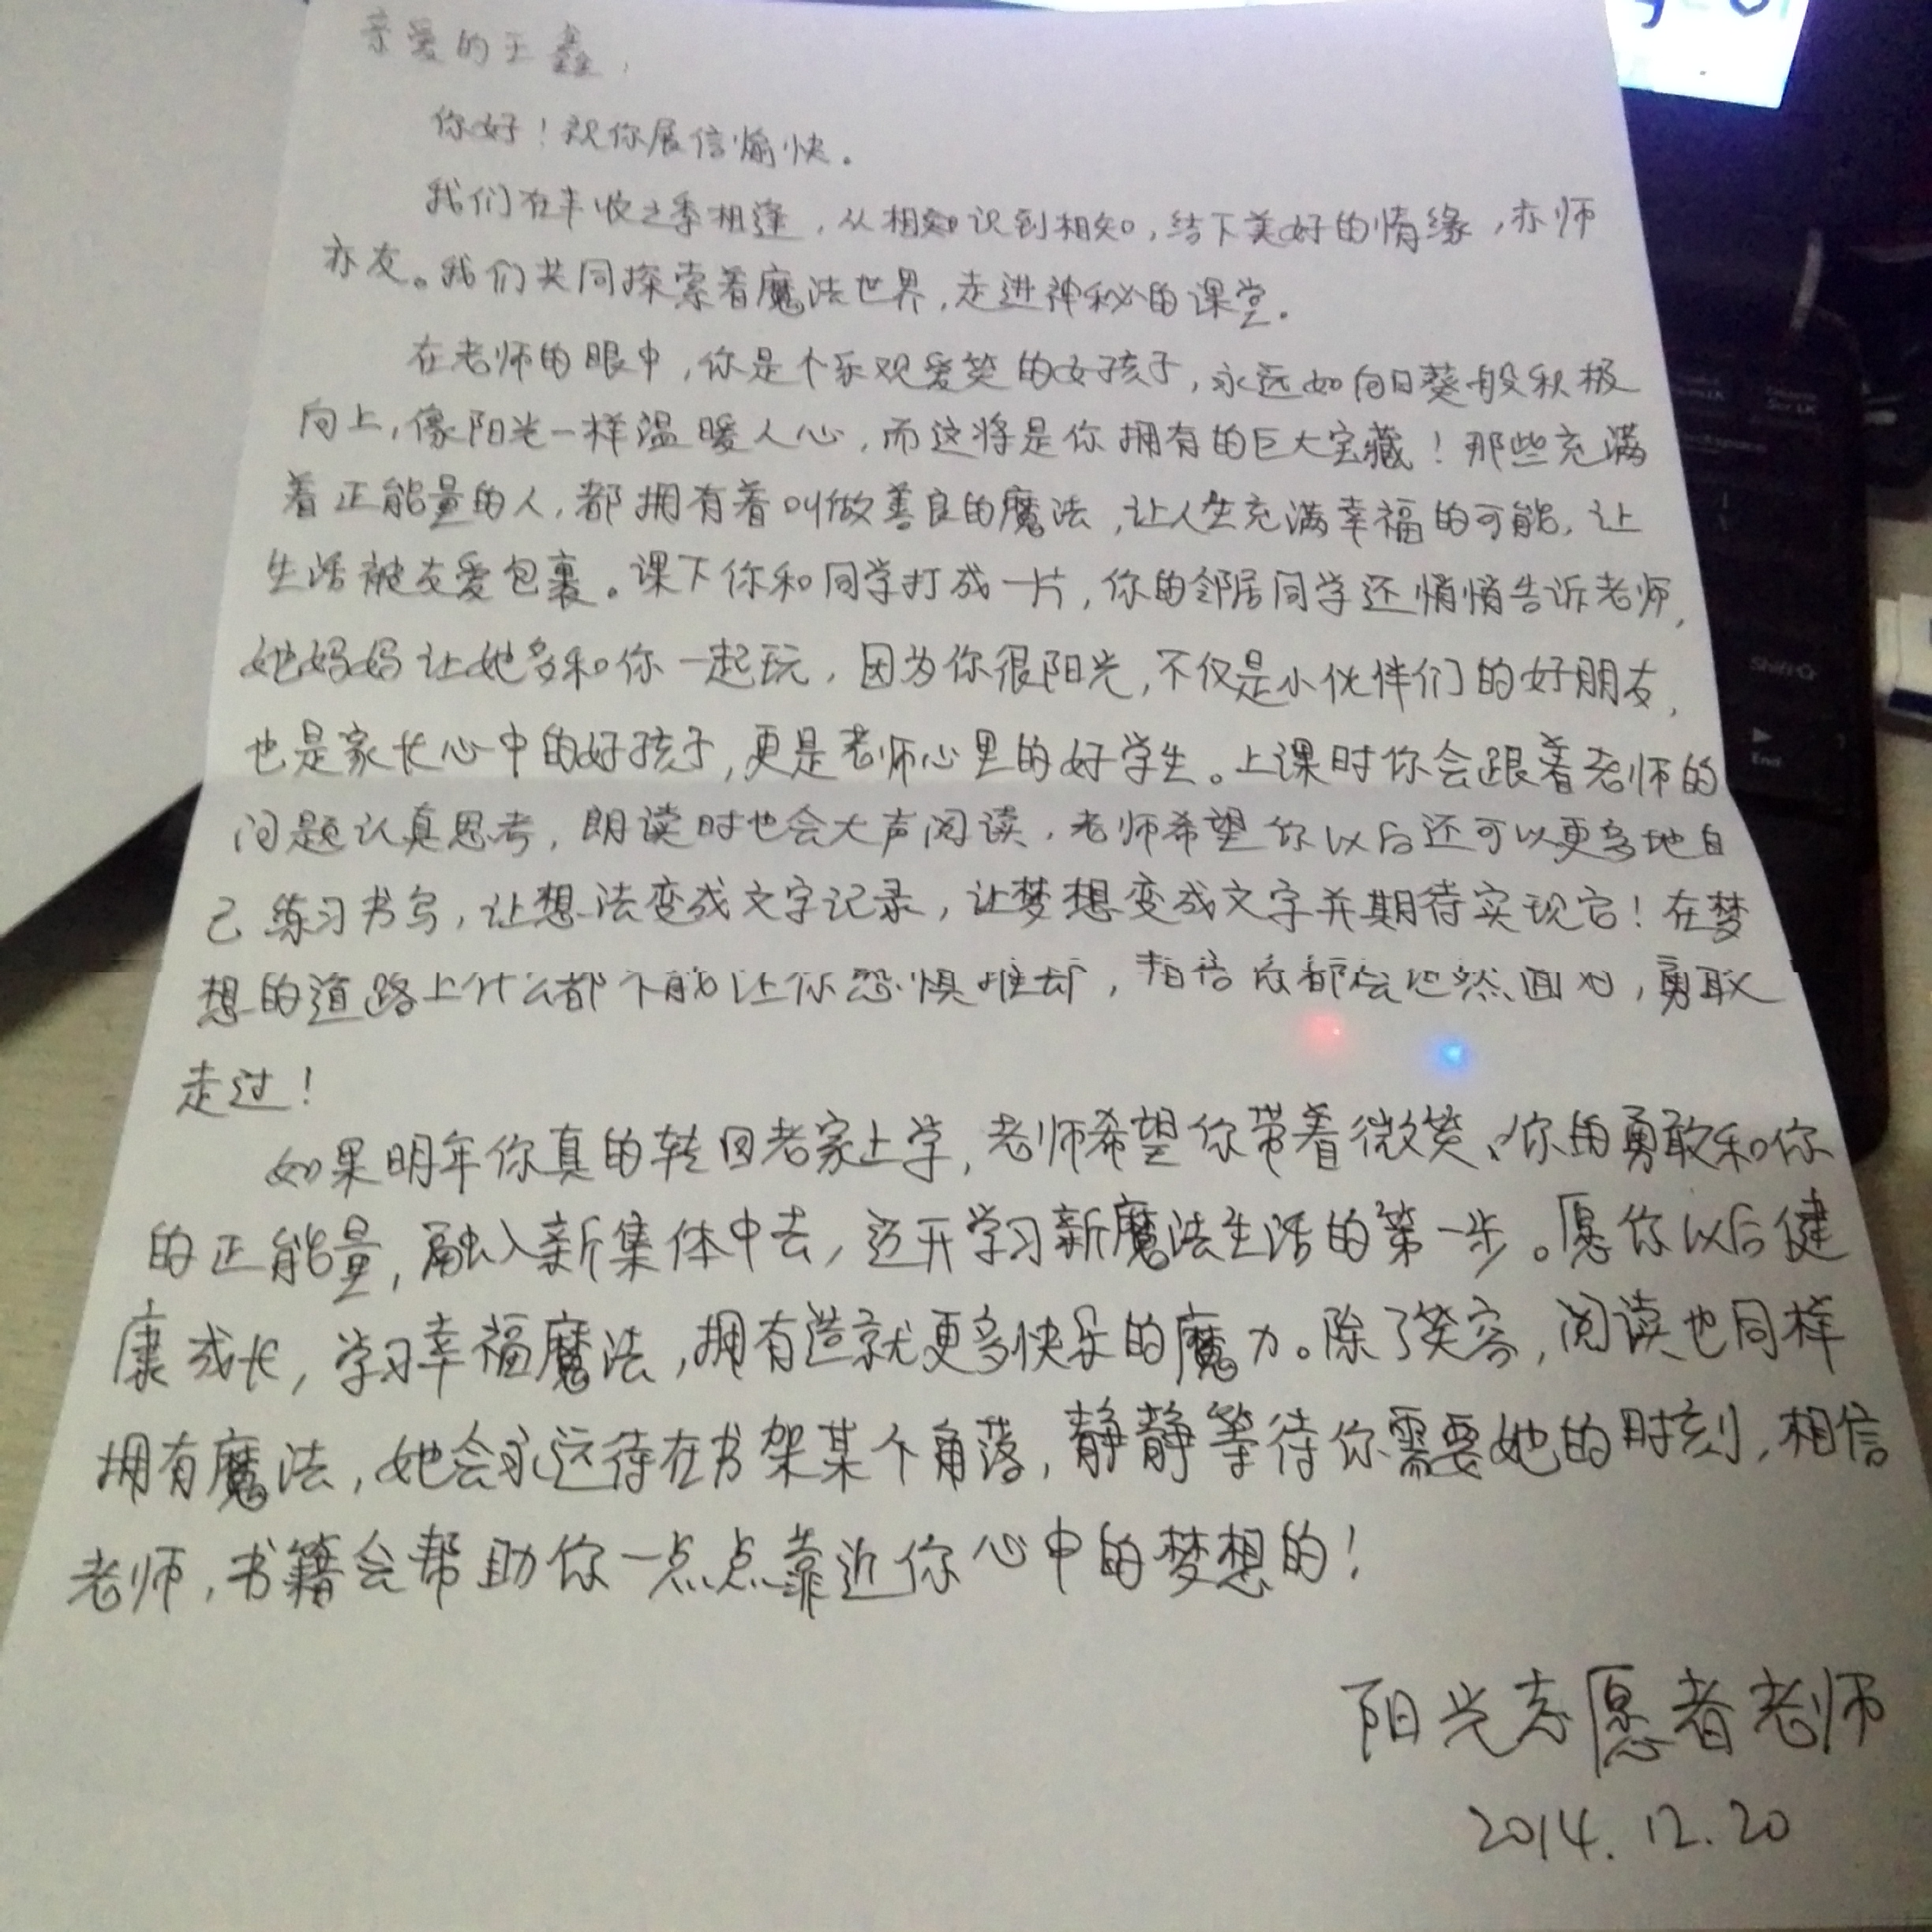 亲爱的王鑫,
你好！祝你展信愉快.
我们在丰收之季相逢,从相识到相知,结下美好的情缘,亦师
亦友。我们共同探索着魔法世界,走进神秘的课堂.
在老师的眼中,你是个乐观爱笑的女孩子,永远如向日葵般积极
向上,像阳光一样温暖人心,而这将是你拥有的巨大宝藏！那些充满
着正能量的人,都拥有着叫做善良的魔法,让人生充满幸福的可能,让
生活被友爱包裹。课下你和同学打成一片,你的邻居同学还悄悄告诉老师,
她妈妈让她多和你一起玩,因为你很阳光,不仅是小伙伴们的好朋友,
也是家长心中的好孩子,更是老师心里的好学生。上课时你会跟着老师的
问题认真思考,朗读时也会大声阅读.老师希望你以后还可以更多地自
己练习书写,让想法变成文字记录,让梦想变成文字并期待实现它！在梦
想的道路上什么都不能让你恐惧推却,相信你都会坦然面对,勇敢
走过！
如果明年你真的转回老家上学,老师希望你带着微笑、你的勇敢和你
的正能量,融入新集体中去,迈开学习新魔法生活的第一步。愿你以后健
康成长,学习幸福魔法,拥有造就更多快乐的魔力。除了笑容,阅读也同样
拥有魔法,她会永远待在书架某个角落,静静等待你需要她的时刻,相信
老师,书籍会帮助你一点点靠近你心中的梦想的！
阳光志愿者老师
2014.12.20
End